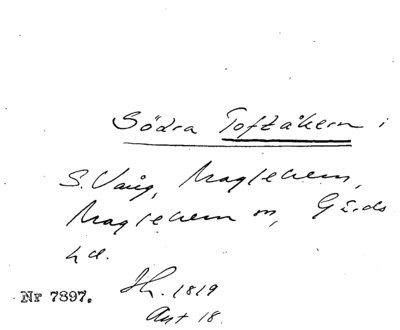 Södra Toftåkern i
S. Vång, Maglehem,
Maglehem sn, Gärds
hd.
Nr 7897. Sk. 1819
Akt 18.